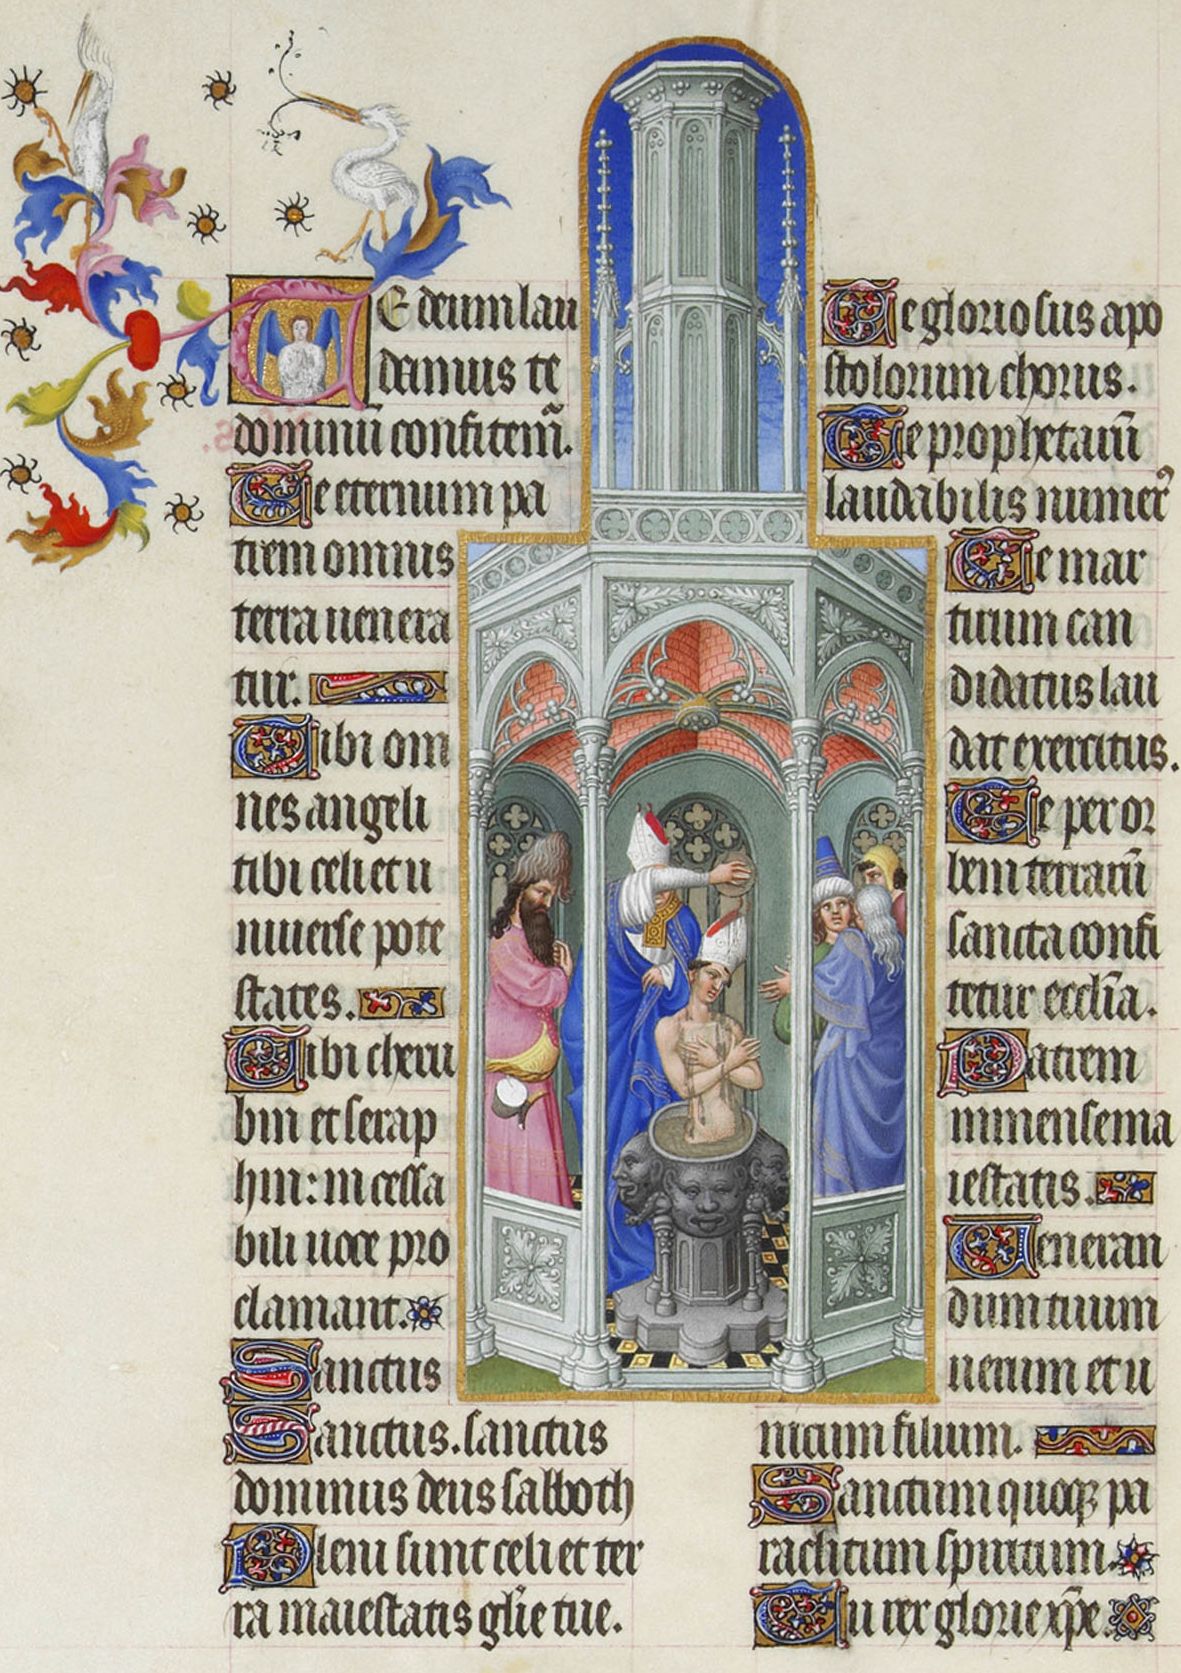 TE deum lau
damus te
dominū confitem̄.
Te eternum pa
trem omnis
terra uenera
tur.
Tibi om
nes angeli
tibi celi et u
niuerse pote
states.
Tibi cheru
bin et serap
hin: incessa
bili uoce pro
clamant.
Sanctus
Sanctus. sanctus
dominus deus sabboth
Pleni sunt celi et ter
ra maiestatis gl̄ie tue.
Te gloriosus apo
stolorum chorus.
Te prophetarū
laudabilis numer᷒
Te mar
tirum can
didatus lau
dat exercitus.
Te per or
bem terrarū
sancta confi
tetur eccl̄ia.
Patrem
immense ma
iestatis.
Ueneran
dum tuum
uerum et u
nicum filium.
Sanctum quoqꝫ pa
raclitum spiritum.
Tu rex glorie xp̄e.